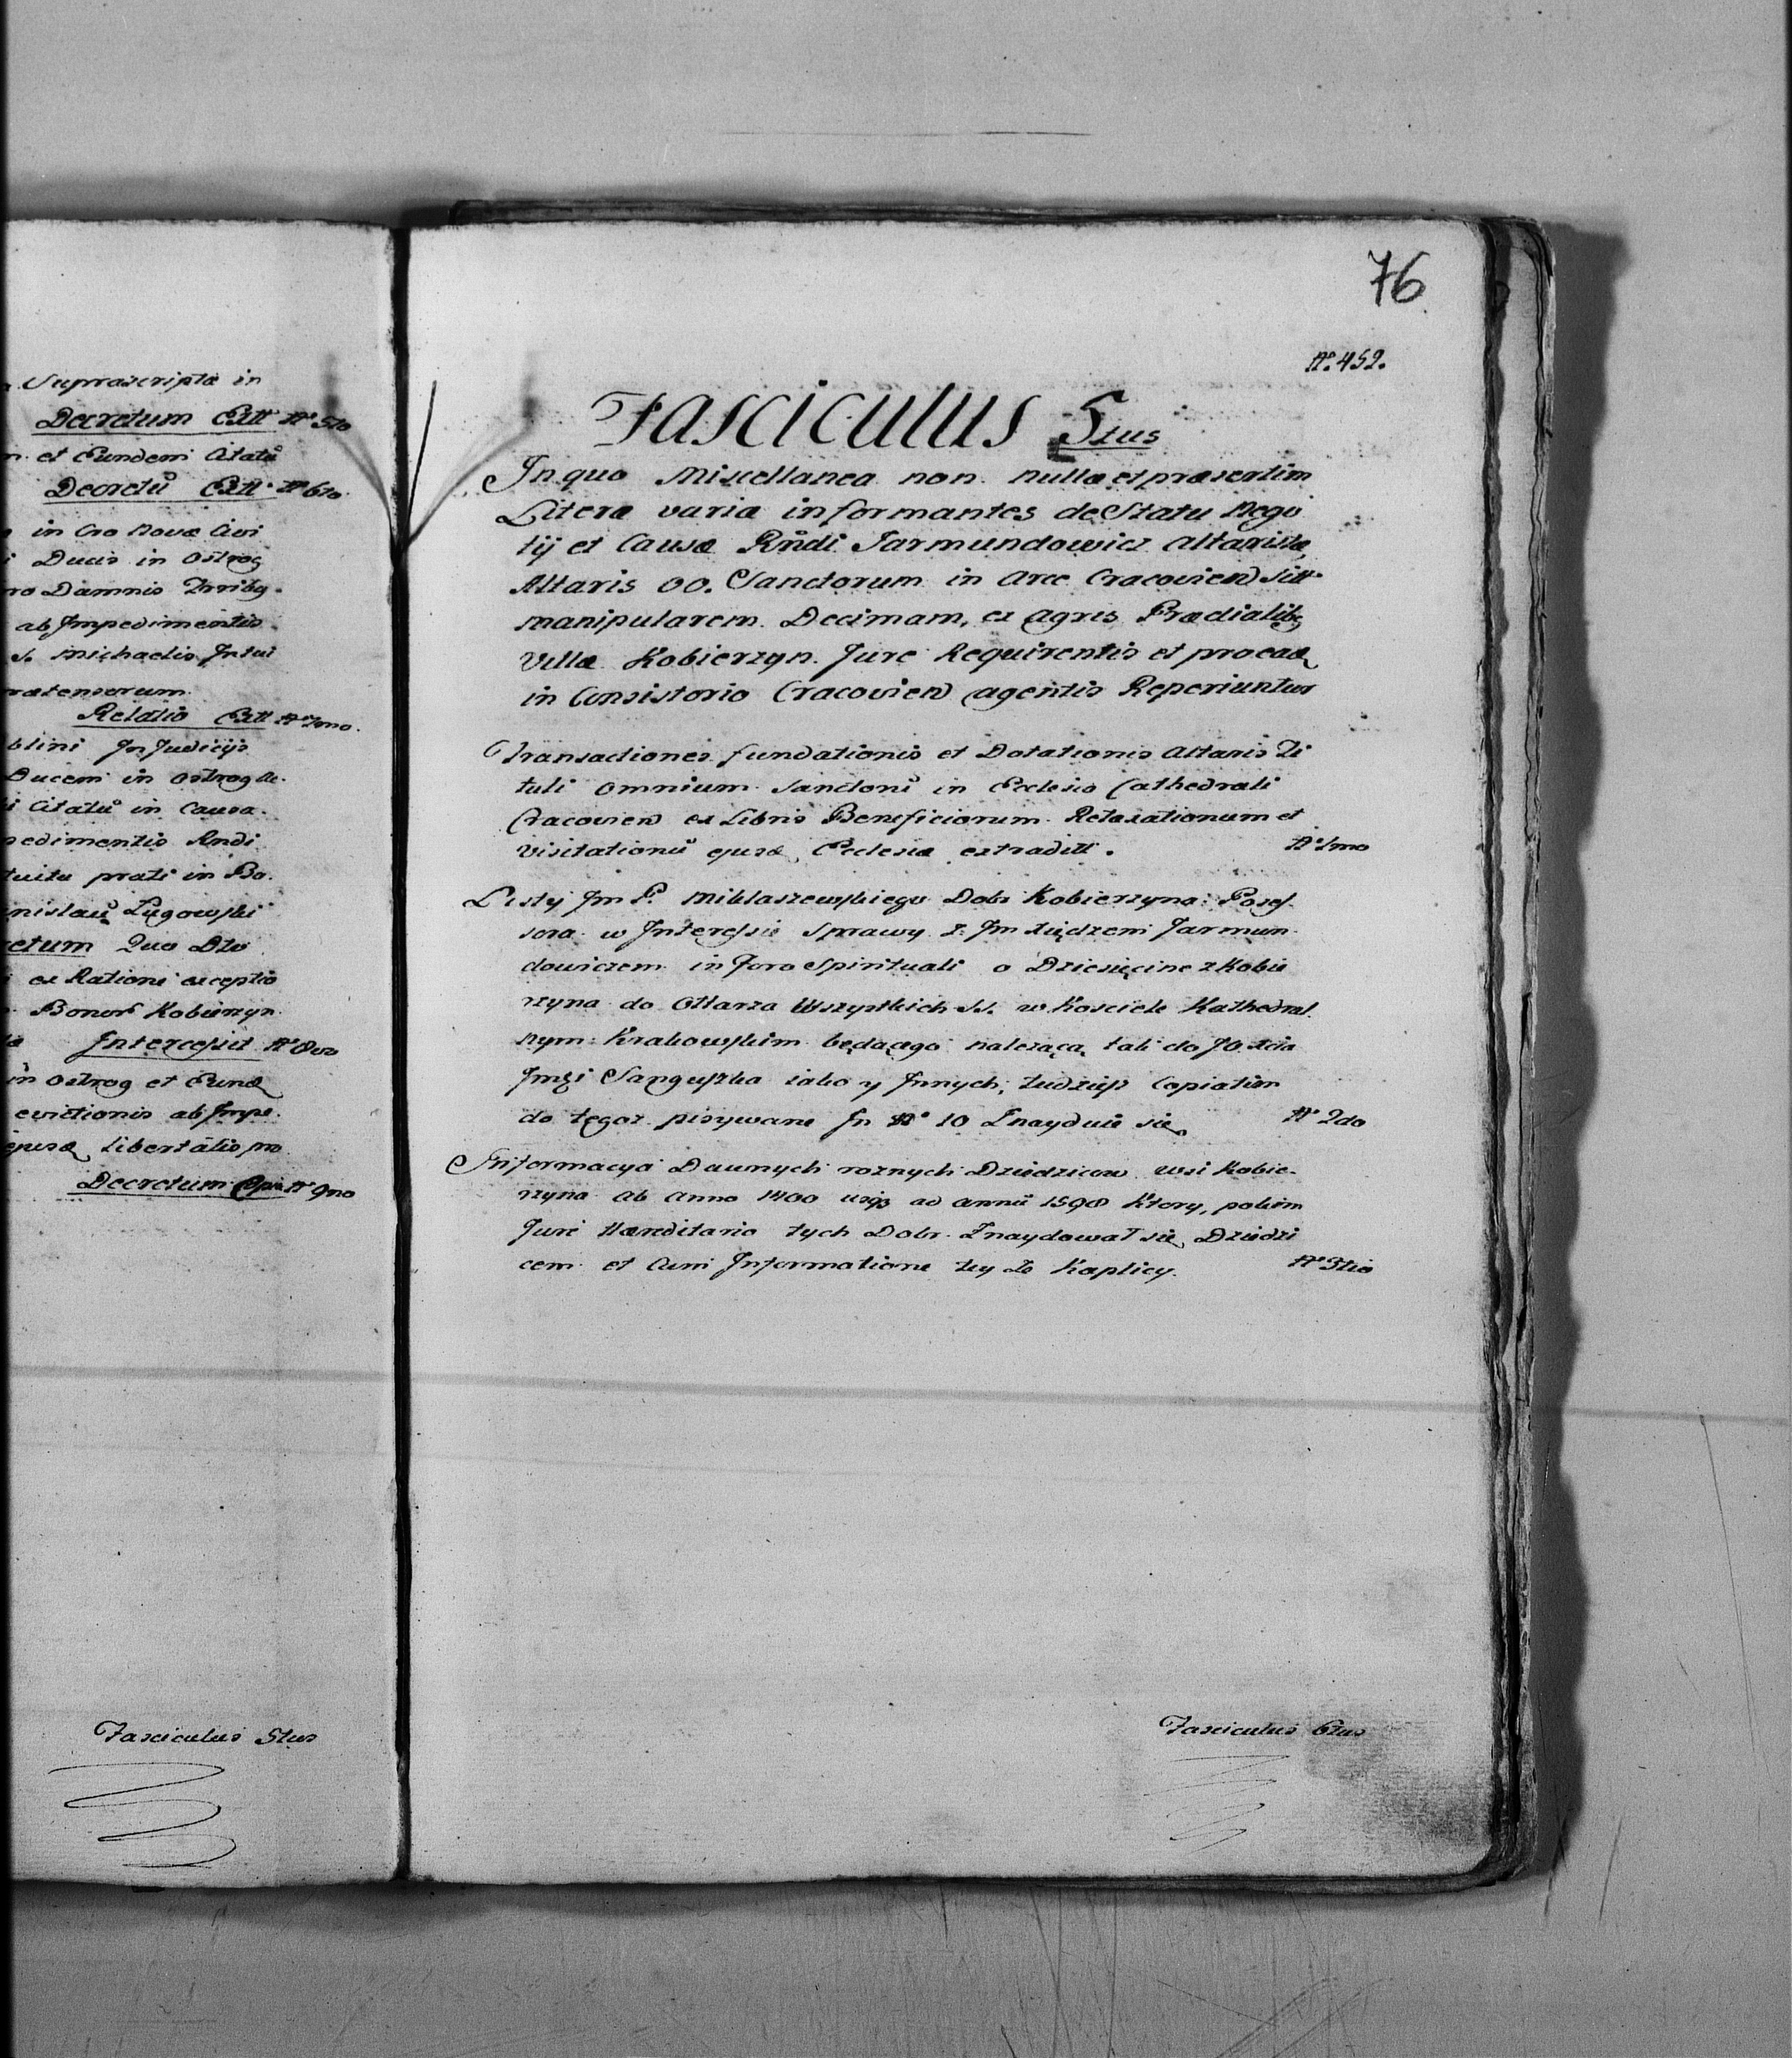 Suprascripta in
Decretum Extt Nº 5to
et Eundem Citatū
Decretū Extt. Nº 6to.
in Cro Novæ Civi
Ducis in Ostrog
ro Damnis Irritÿ.
ab Impedimentis
S. Michaelis Intui
ratensorum
Relatio Extt Nº 7mo.
blini In Judicijs
Ducem in Ostrog &c.
Citatū in Causa.
pedimentis Rndi
tuitu prati in Bo.
nislaū Ługowski
retum Quo Dto
ex Ratione exceptio
Bonorū Kobierzyn
Intercessit Nº 8vo
in Ostrog et Eund
evictionis ab Impe.
ejusd libertatis pro
Decretum Copia Nº 9no
Fasciculus 5tus
76
Nº. 452.
Fasciculus 5tus
In quo Miscellanea non nullæ et præsertim
Literæ variæ informantes de Statu Nego
tij et Causæ Rndi Jarmundowicz Altaristæ
Altaris OO. Sanctorum in Arce Cracovien Sitt.
manipularem Decimam, ex Agris Prædialibq
Villæ Kobierzyn. Jure Requirentis et proead
in Consistorio Cracovien agentis Reperiuntur
Transactiones fundationis et Dotationis Altaris Ti
tuli Omnium Sanctorū in Ecclesia Cathedrali
Cracovien ex Libris Beneficiorum Retaxationum et
Visitationū ejusd Ecclesiæ extraditt. Nº 1mo
Listy Jm P. Miklaszewskiego Dobr Kobierzyna Posses
sora w Interessie Sprawy z Jm Xiędzem Jarmun
dowiczem in Foro Spirituali o Dziesięcine z Kobie
rzyna do Ołtarza Wszystkich SS. w Kosciele Kathedral
nym Krakowskim będącego nalezącą tak do JO. Xcia
Jmći Sanguszka iako y Innych, tudziesz Copiatim
do tegoz pisywane In Nº 10 Znayduie się Nº 2do
Informacya Dawnych roznych Dziedzicow wsi Kobie
rzyna ab Anno 1400 usq ad annū 1598 Ktory, pokim
Jure Hæreditario tych Dobr Znaydował się Dziedzi
cem et Cum Informatione tey ze Kaplicy. Nº 3tio
Fasciculus 6tus